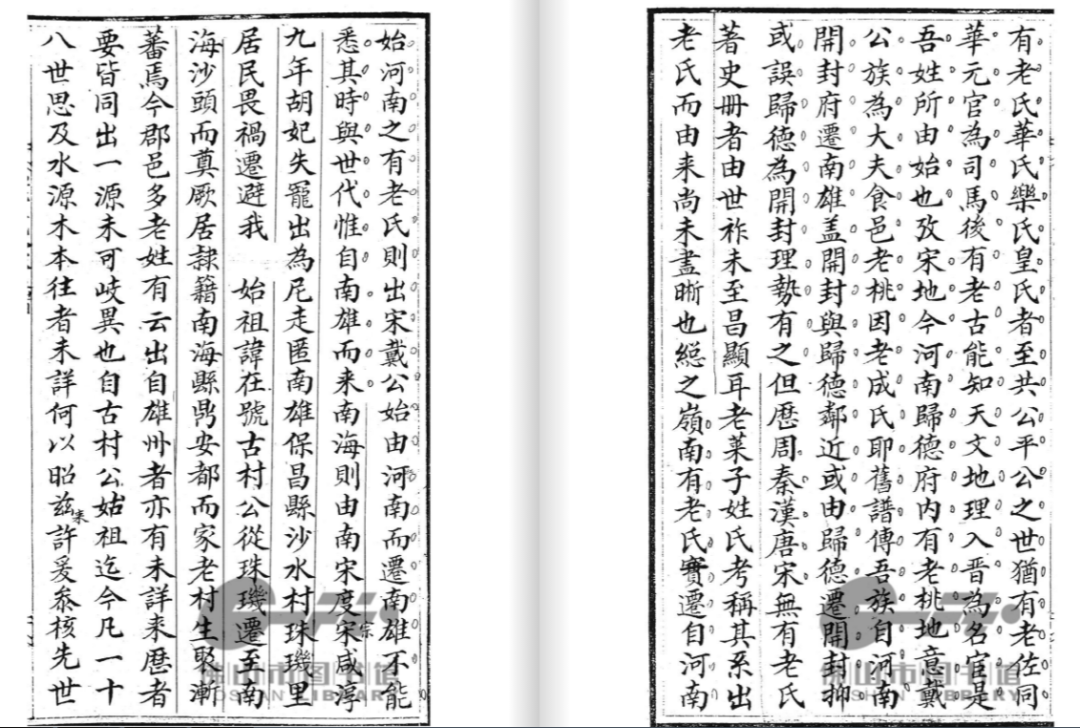 有老氏華氏樂氏皇氏者至共公平公之世猶有老佐同
華元官為司馬後有老古能知天文地理入晋為名官是
吾姓所由始也攷宋地今河南歸德府內有老桃地意戴
公族為大夫食邑老桃因老成氏耶舊譜傳吾族自河南
開封府遷南雄盖開封與歸德鄰近或由歸德遷開封抑
或誤歸德為開封理勢有之但歷周秦漢唐宋無有老氏
著史冊者由世祚未至昌顯耳老萊子姓氏考稱其系出
老氏而由来尚未盡晰也緫之嶺南有老氏實遷自河南
始河南之有老氏則出宋戴公始由河南而遷南雄不能
悉其時與世代惟自南雄而来南海則由南宋度宋宗咸淳
九年胡妃失寵出為尼走匿南雄保昌縣沙水村珠璣里
居民畏禍遷避我 始祖諱在號古村公從珠璣遷至南
海沙頭而奠厥居隷籍南海縣鼎安都而家老村生聚漸
蕃焉今郡邑多老姓有云出自雄州者亦有未詳来歷者
要皆同出一源未可岐異也自古村公姑祖迄今凡一十
八世思及水源木本往者未詳何以昭兹来許爰叅核先世
佛山市图书馆
FOSHAN LIBRARY
佛山市图书馆
FOSHAN LIBRARY